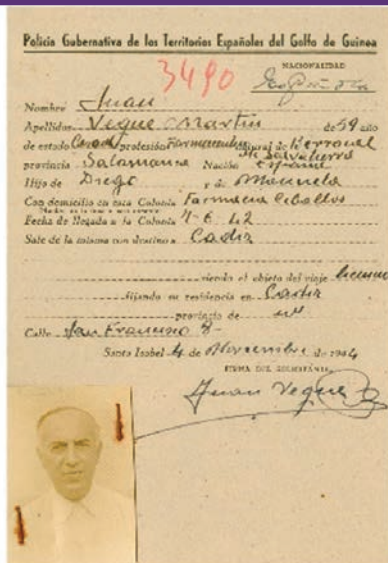 Policía Gubernativa de los Territorios Españoles del Golfo de Guinea
NACIONALIDAD
3490
Española
Nombre Juan
Apellidos Vegue Martín de 59 año
de estado Casado profesión Farmacéutico natural de Berrocal
de Salvatierra
provincia Salamanca Nación Español
Hijo de Diego y de Manuela
Con domicilio en esta Colonia Farmacia Ceballos
Fecha de llegada a la Colonia 4-6-42
Sale de la misma con destino a Cadiz
siendo el objeto del viaje
fijando su residencia en Cadiz
provincia de id
Calle San Francisco
Santa Isabel 4 de Noviembre de 1944
FIRMA DEL SOLICITANTE,
Juan Vegue